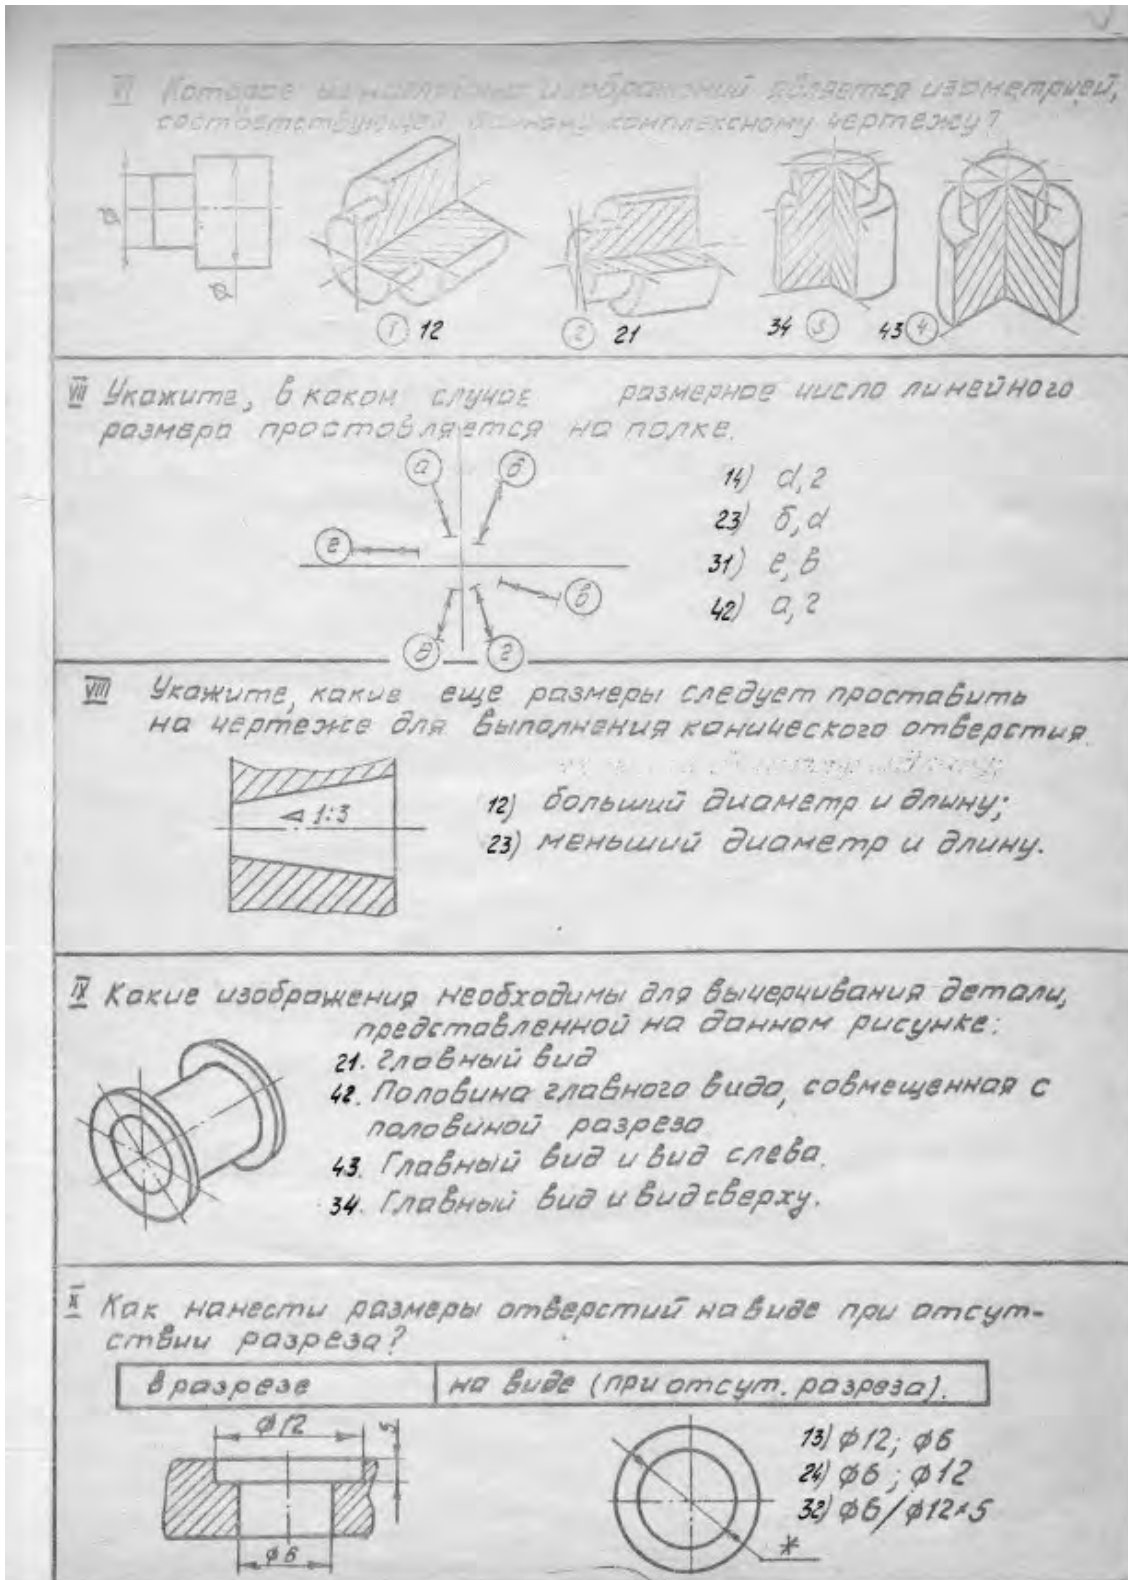 VI Которое из наглядных изображений является изометрией,
соответствующей данному комплексному чертежу?
ø
ø
1 12
2 21
34 3
43 4
VII Укажите, в каком случае размерное число линейного
размера проставляется на полке.
а б
е
в
д г
14) d, г
23) б, d
31) е, в
42) а, г
VIII Укажите, какие еще размеры следует проставить
на чертеже для выполнения конического отверстия.
1:3
12) больший диаметр и длину;
23) меньший диаметр и длину.
IX Какие изображения необходимы для вычерчивания детали,
представленной на данном рисунке:
21. Главный вид
42. Половина главного вида, совмещенная с
половиной разреза
43. Главный вид и вид слева.
34. Главный вид и вид сверху.
X Как нанести размеры отверстий на виде при отсут-
ствии разреза?
в разрезе на виде (при отсут. разреза).
ø12 5
ø6
*
13) ø12; ø6
24) ø6; ø12
32) ø6/ø12×5